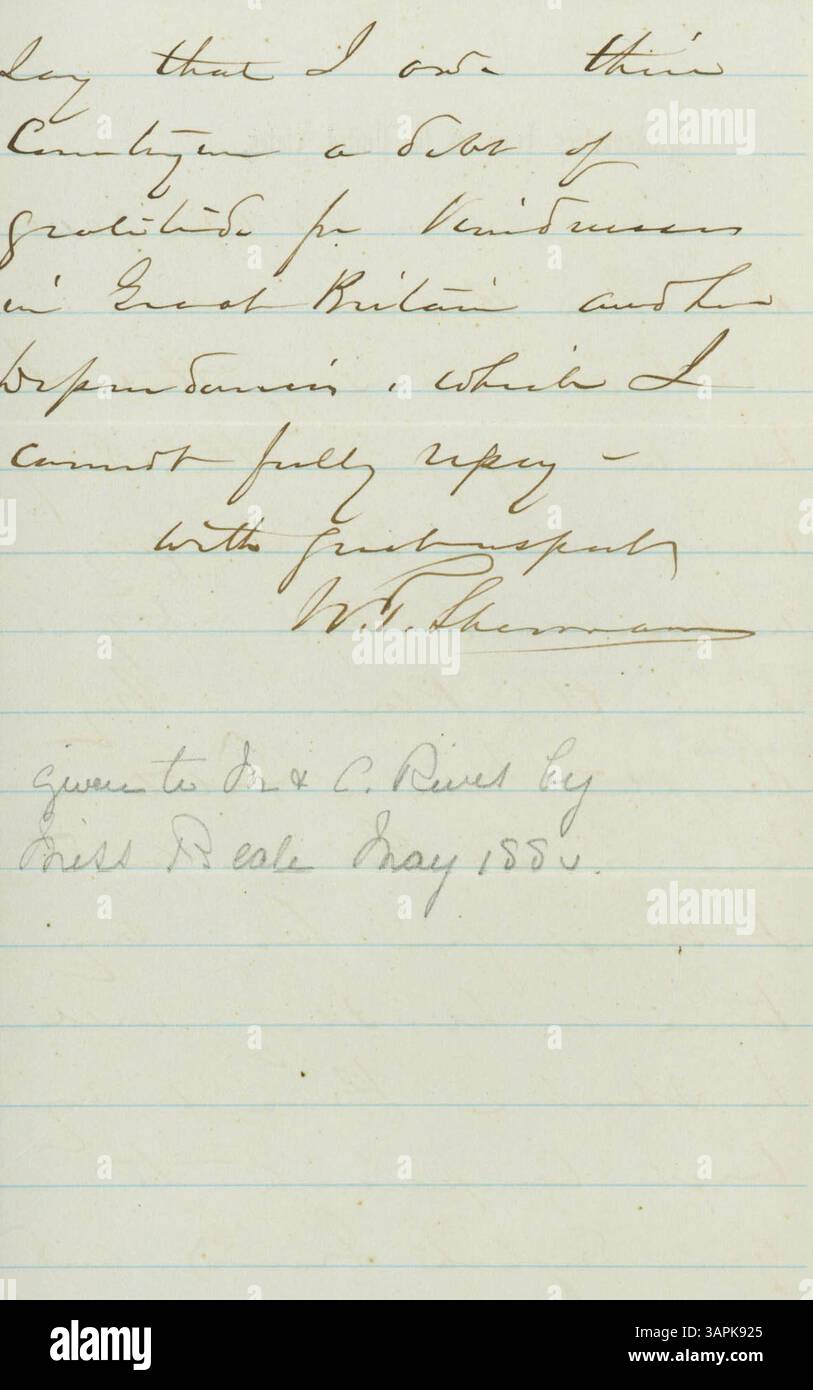 say that I owe their
Countrymen a debt of
gratitude for Kindnesses
in Great Britain and her
Dependancies, which I
cannot fully repay –
with great respect,
W. T. Sherman
given to M & C. Rives by
Miss Beale May 188
alamy
Image ID: 3APK925
www.alamy.com